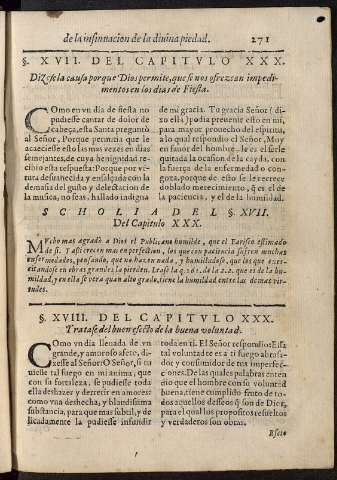 de la insinuacion de la diuina piedad. 271
§. XVII. DEL CAPITVLO XXX.
Dizese la causa porque Dios permite, que se nos ofrezcan impedi-
mentos en los dias de Fiesta.
COmo en vn dia de fiesta no
pudiesse cantar de dolor de
cabeça, esta Santa preguntò
al Señor, Porque permitia que le
acaeciesse esto las mas vezes en dias
semejantes, de cuya benignidad re-
cibio esta respuesta: Porque por vẽ-
tura desuanecida y ensalçada con la
demasia del gusto y delectacion de
la musica, no seas hallado indigna
de mi gracia. Tu gracia Señor (di-
xo ella) podia preuenir esto en mi,
para mayor prouecho del espiritu,
a lo qual respondio el Señor, Muy
en fauor del hombre, le es el ser le
quitada la ocasion de la cayda, con
la fuerça de la enfermedad o con-
goxa, porque de esto se le recrece
doblado merecimiento, q̃ es el de
de la paciencia, y el de la humildad.
SCHOLIA DEL §. XVII.
Del Capitulo XXX.
MVcho mas agradò a Dios el Publicano humilde, que el Fariseo estimado
de si. Tassi crecen mas en perfection, los que con paciencia sufren muchas
enfermedades, pensando, que no hazen nada, y humillandose, que los que exer-
citandose en obras grandes la pierden. Lease la q. 161. de la 2.2. que es de la hu-
mildad, y en ella se vera quan alto grado, tiene la humildad entre las demas vir-
tudes.
§. XVIII. DEL CAPITVLO XXX.
Y tratase del buen efecto de la buena voluntad.
COmo vn dia lleuada de vn
grande, y amoroso afeto, di-
xesse al Señor: O Señor, si tu
uiesse tal fuego en mi anima, que
con su fortaleza, se pudiesse toda
ella deshazer y derretir en amoresc
como vna deshecha, y blandissima
substancia, para que mas subtil, y de
licadamente la pudiesse infundir
toda en ti. El Señor respondio: Essa
tal voluntad te es a ti fuego abrasa-
dor, y consumidor de tus imperfec-
ciones. De las quales palabras enten
dio que el hombre con su voluntad
buena, tiene cumplido fruto de to-
dos aquellos desseos q̃ son de Dios,
para el qual los propositos resueltos
y verdaderos son obras.
Esto